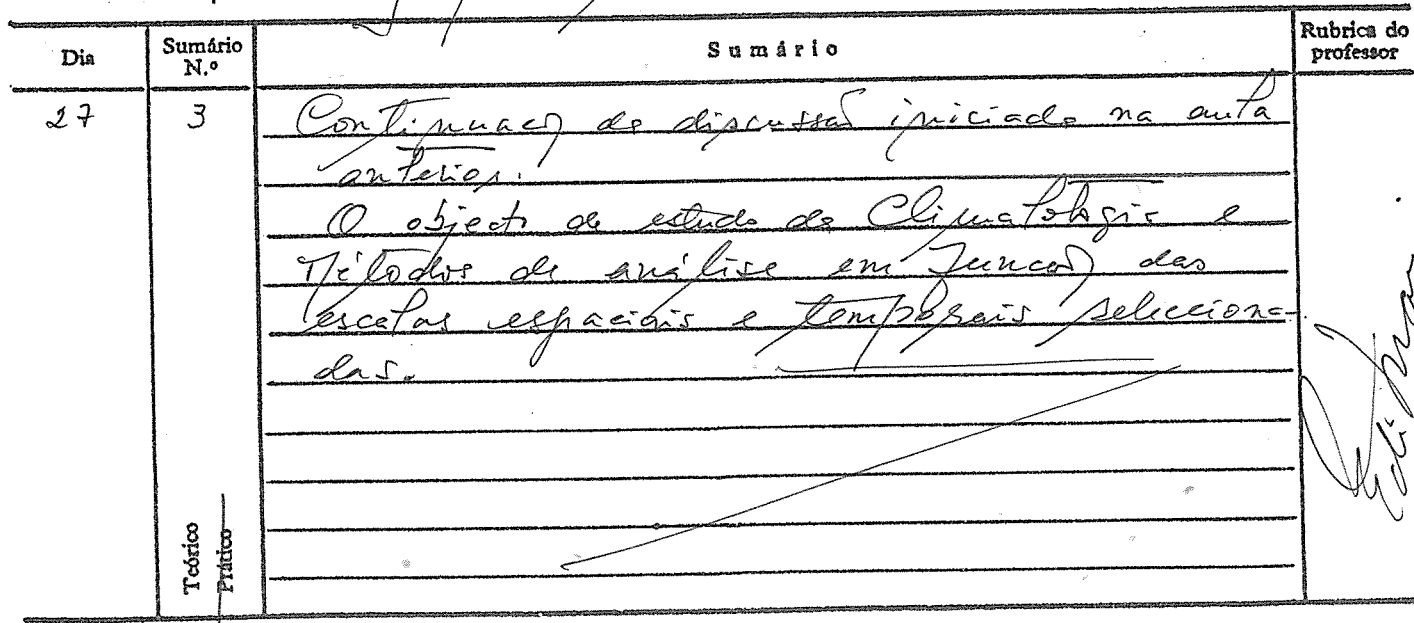 Dia
Sumário N.º
Sumário
Rubrica do professor
27
3
Continuação da discussão iniciada na aula
anterior.
O objecto de estudo da Climatologia e
Métodos de análise em função das
escalas espaciais e temporais selecciona-
das.
Teórico
Prático